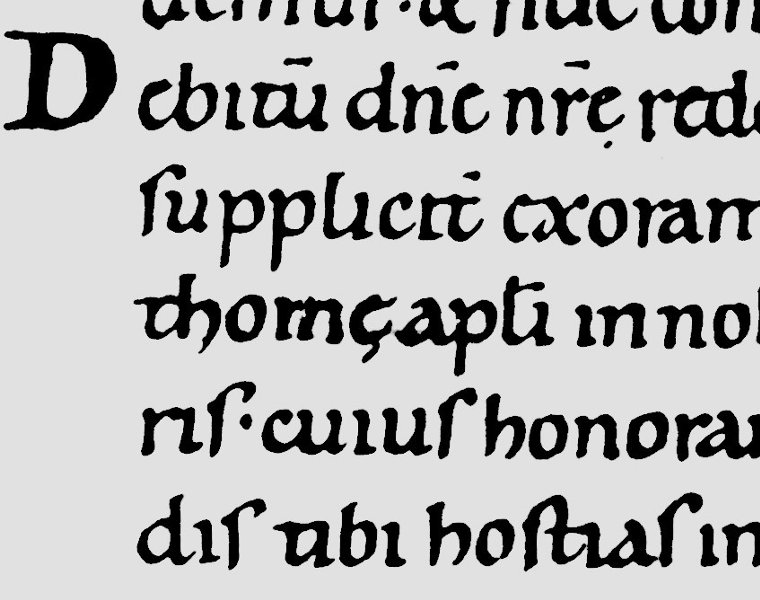 Debitū dn̄e nr̄ę redd
ſupplicit̄ exoran
thomę apłi in nob
riſ· cuiuſ honoran
diſ tibi hoſtiaſ in